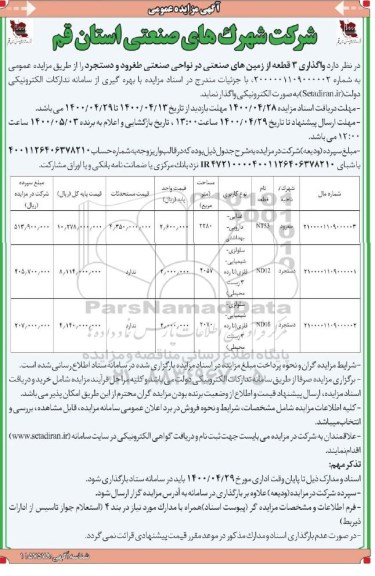 آگهی مزایده عمومی
شرکت شهرک های صنعتی استان قم
در نظر دارد واگذاری ۳ قطعه از زمین های صنعتی در نواحی صنعتی طغرود و دستجرد را از طریق مزایده عمومی
به شماره ۲۰۰۰۰۰۱۱۰۹۰۰۰۰۰۲ با جزئیات مندرج در اسناد مزایده با بهره گیری از سامانه تدارکات الکترونیکی
دولت (Setadiran.ir) به صورت الکترونیکی واگذار نماید.
- مهلت دریافت اسناد مزایده ۱۴۰۰/۰۴/۲۸ مهلت بازدید از تاریخ ۱۴۰۰/۰۴/۱۳ تا ۱۴۰۰/۰۴/۲۹ می باشد.
- مهلت ارسال پیشنهاد تا تاریخ ۱۴۰۰/۰۴/۲۹ ساعت ۱۳:۰۰ ، تاریخ بازگشایی و اعلام به برنده ۱۴۰۰/۰۵/۰۳ ساعت
۱۲:۰۰ می باشد.
- مبلغ سپرده (ودیعه) شرکت در مزایده به شرح جدول ذیل بوده که در قالب واریز وجه به شماره حساب ۴۰۰۱۱۲۶۴۰۶۳۷۸۲۱۰
با شبای IR ۴۷۲۱۰۰۰۰۴۰۰۱۱۲۶۴۰۶۳۷۸۲۱۰ نزد بانک مرکزی یا ضمانت نامه بانکی و یا اوراق مشارکت.
شماره مال شهرک/ناحیه نام قطعه نوع کاربری مساحت (متر مربع) قیمت واحد پایه (ریال) قیمت مستحدثات قیمت پایه کل (ریال) مبلغ سپرده شرکت در مزایده (ریال)
طغرود NT53 غذایی-دارویی-بهداشتی ۲۲۸۰ ۲,۶۰۰,۰۰۰ ۴,۳۵۰,۰۰۰,۰۰۰ ۱۰,۲۷۸,۰۰۰,۰۰۰ ۵۱۳,۹۰۰,۰۰۰
دستجرد ND12 سلولزی-شیمیایی-فلزی(تا رده ۳ زیست محیطی) ۴۰۵۷ ۲,۰۰۰,۰۰۰ ندارد ۸,۱۱۴,۰۰۰,۰۰۰ ۴۰۵,۷۰۰,۰۰۰
دستجرد ND16 سلولزی-شیمیایی-فلزی(تا رده ۳ زیست محیطی) ۲۰۷۰ ۲,۰۰۰,۰۰۰ ندارد ۴,۱۴۰,۰۰۰,۰۰۰ ۲۰۷,۰۰۰,۰۰۰
ParsNamadData
پایگاه اطلاع رسانی مناقصه و مزایده
- شرایط مزایده گران و نحوه پرداخت مبلغ مزایده در اسناد مزایده بارگزاری شده در سامانه ستاد اطلاع رسانی شده است.
- برگزاری مزایده صرفا از طریق سامانه تدارکات الکترونیکی دولت می باشد و کلیه مراحل فرآیند مزایده شامل خرید و دریافت
اسناد مزایده، ارسال پیشنهاد قیمت و اطلاع از وضعیت برنده بودن مزایده گران محترم از این طریق امکان پذیر می باشد.
- کلیه اطلاعات مزایده شامل مشخصات، شرایط و نحوه فروش در برد اعلان عمومی سامانه مزایده، قابل مشاهده، بررسی و
انتخاب میباشد.
- علاقمندان به شرکت در مزایده می بایست جهت ثبت نام و دریافت گواهی الکترونیکی در سایت سامانه (www.setadiran.ir)
اقدام نمایند.
تذکر مهم:
اسناد و مدارک ذیل تا پایان وقت اداری مورخ ۱۴۰۰/۰۴/۲۹ باید در سامانه ستاد بارگزاری شود.
- سپرده شرکت در مزایده (ودیعه) علاوه بر بارگذاری در سامانه به آدرس مزایده گزار ارسال شود.
- فرم اطلاعات و مشخصات مزایده گر (پیوست اسناد) همراه با مدارک مورد نیاز در بند ۴ (استعلام جواز تاسیس از ادارات
ذیربط)
- در صورت عدم بارگذاری اسناد و مدارک مذکور در موعد مقرر قیمت پیشنهادی قرائت نمی گردد.